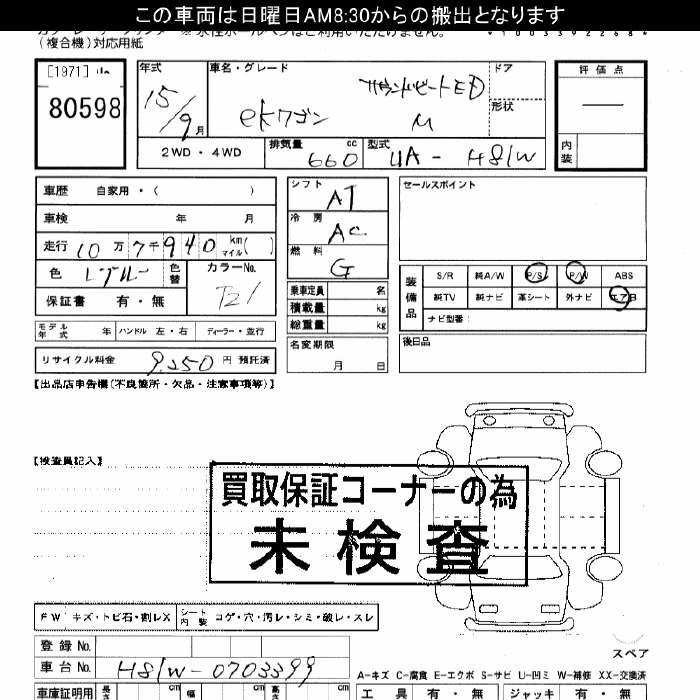 この車両は日曜日AM8:30からの搬出となります
(複合機)対応用紙
[1971]
80598
年式 車名・グレード ドア 評価点
15/9月 サウンドビートED
ekワゴン M 形状
2WD・4WD 排気量 660 cc 型式 UA-H81W 内装
車歴 自家用・( ) シフト AT セールスポイント
車検 年 月 冷房 AC
走行 10万7千940km マイル( ) 燃料 G
色 色替 カラーNo. T21
装備品 S/R 純A/W P/S P/W ABS
純TV 純ナビ 革シート 外ナビ エアB
ナビ型番:
保証書 有・無 乗車定員 名
積載量 kg
総重量 kg
モデル年式 年 ハンドル 左・右 ディーラー・並行
名変期限 月 日 後日品
リサイクル料金 9,250円 預託済
【出品店申告欄(不良箇所・欠品・注意事項等)】
【検査員記入】
買取保証コーナーの為
未検査
FW キズ・トビ石・割レX シート内装 コゲ・穴・汚レ・シミ・破レ・スレ
スペア
登録No.
車台No. H81W-0703399
A-キズ C-腐食 E-エクボ S-サビ U-凹ミ W-補修 XX-交換済
車庫証明用 長さ cm 幅 cm cm 工具 有・無 ジャッキ 有・無